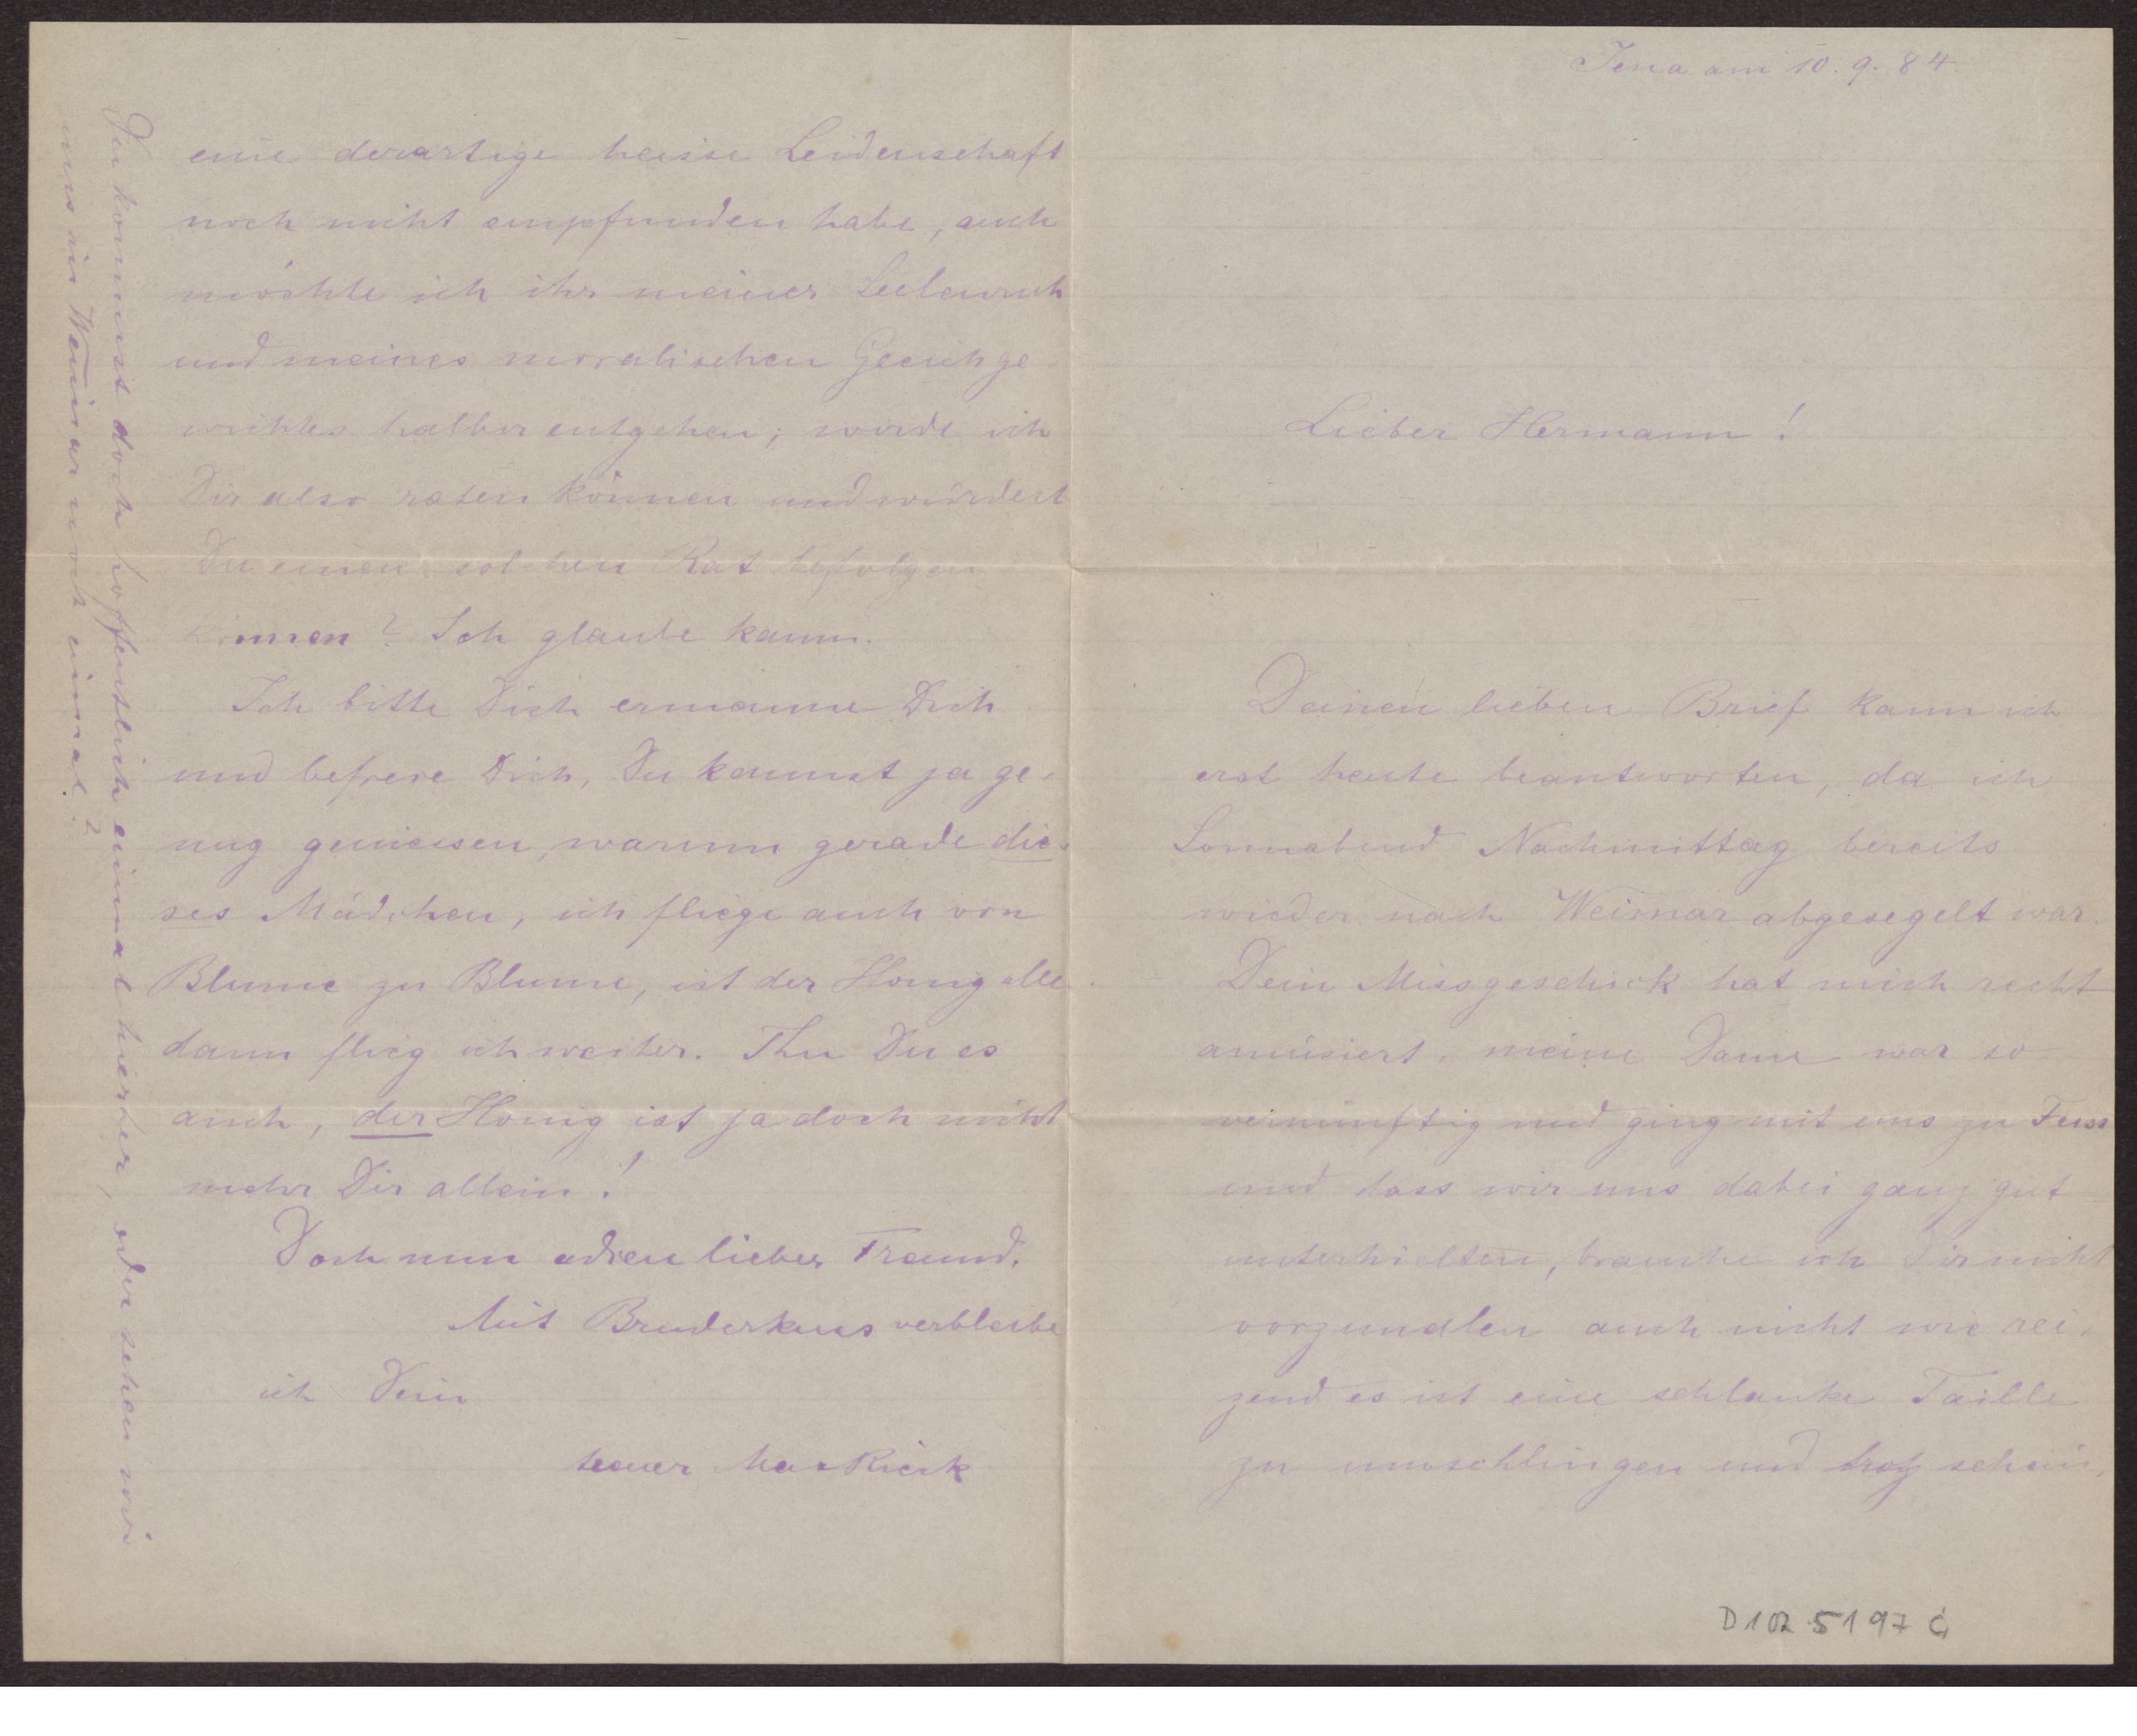 Jena am 10. 9. 84.
Lieber Hermann!
Deinen lieben Brief kann ich
erst heute beantworten, da ich
Sonnabend Nachmittag bereits
wieder nach Weimar abgesegelt war.
Dein Missgeschick hat mich recht
amüsiert, meine Dame war so
vernünftig und ging mit uns zu Fuss
und dass wir uns dabei ganz gut
unterhielten, brauche ich Dir nicht
vorzumalen auch nicht wie rei-
zend es ist eine schlanke Taille
zu umschlingen und trotz schein-
D102 5197 C
eine derartige heisse Leidenschaft
noch nicht empfunden habe, auch
möchte ich ihr meiner Seelenruh
und meines moralischen Gleichge-
wichtes halber entgehen; würde ich
Dir also raten können und würdest
Du einen solchen Rat befolgen
können? Ich glaube kaum.
Ich bitte Dich ermanne Dich
und befreie Dich, Du kannst ja ge-
nug geniessen, warum gerade die-
ses Mädchen, ich fliege auch von
Blume zu Blume, ist der Honig alle
dann flieg ich weiter. Thu Du es
auch, der Honig ist ja doch nicht
mehr Dir allein!
Doch nun adieu lieber Freund.
Mit Bruderkuss verbleibe
ich Dein
teurer Max
Du kommst doch hoffentlich einmal hierher, oder sehen wir
uns in Weimar noch einmal?